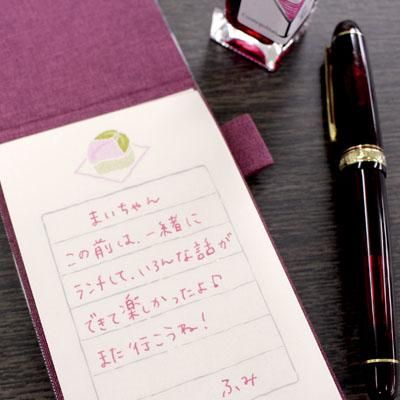 まいちゃん
この前は、一緒に
ランチして、いろんな話が
できて楽しかったよ♪
また行こうね！
ふみ